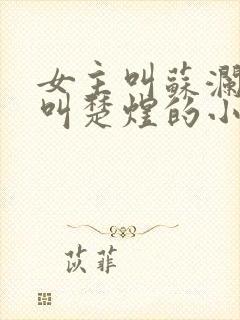 女主叫蘇瀾
叫楚煌的小
苡菲